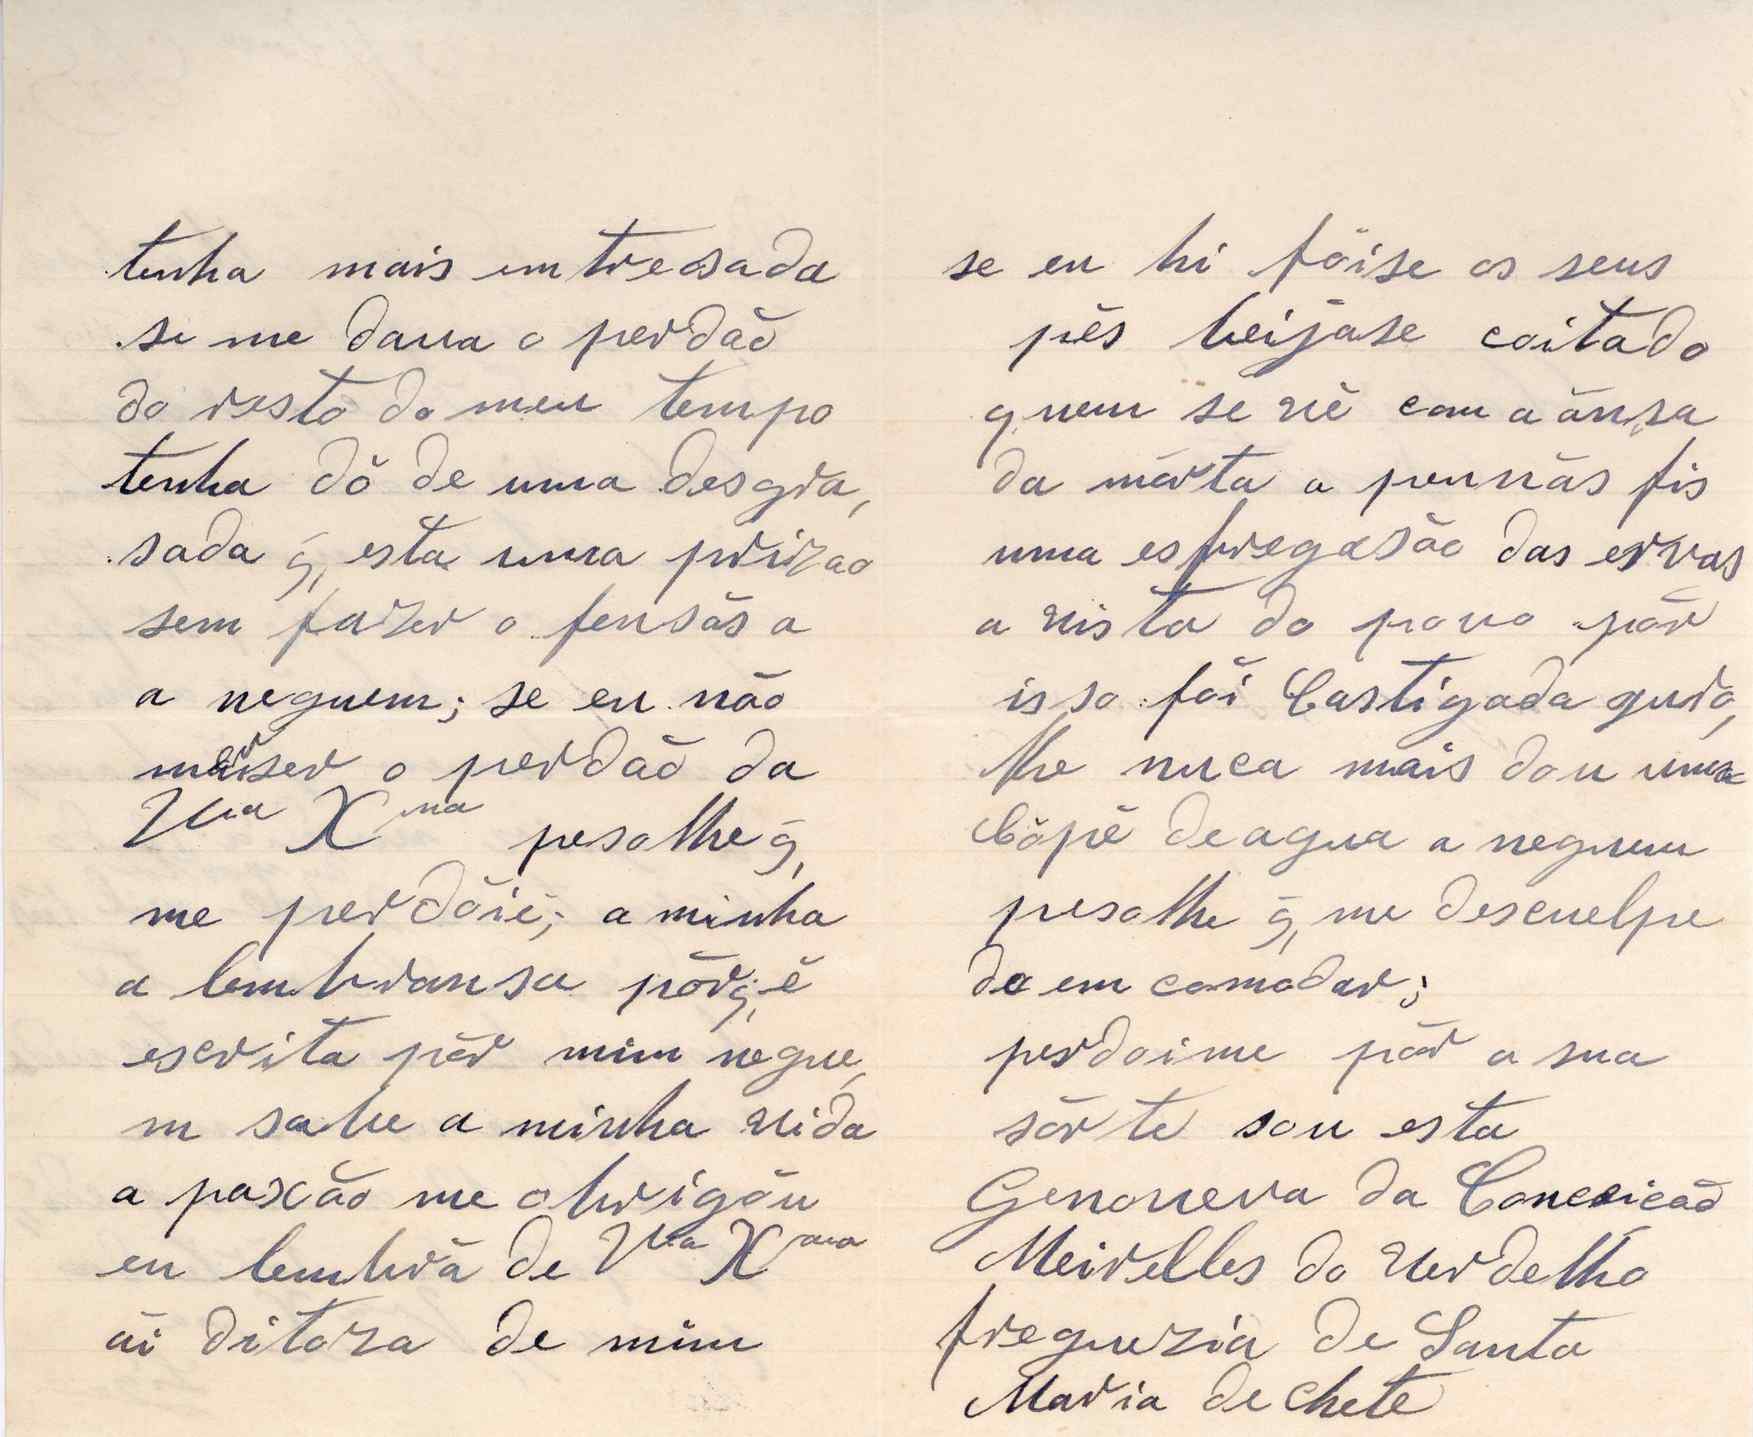 tenha mais emtresada
si me dava o perdão
do resto do meu tempo
tenha dó de uma desgra,
sada q̃, esta uma prizao
sem fazer o fensãs a
a neguem; se eu não
merser o perdão da
Vcia Xma pesolhe q̃,
me perdõie; a minha
a lembransa põrq̃, é
escrita põr mim negue,
m sabe a minha vida
a paxão me obrigõu
eu lembrã de Vcia Xma
ãi ditoza de mim
se eu hi fõise os seus
pés beijãse coitado
quem se vê com a ãnsa
da mõrta a pennãs fis
uma esfregasão das ervas
a vista do povo põr
isso fõi Castigada gurõ,
lhe nuca mais dou uma
Cõpé de agua a neguem
pesolhe q̃, me descuelpe
de em comodar;
perdoime põr a sua
sõrte sou esta
Genoveva da Conceicaõ
Meirelles do Verdelho
freguezia de Santa
Maria de Chete